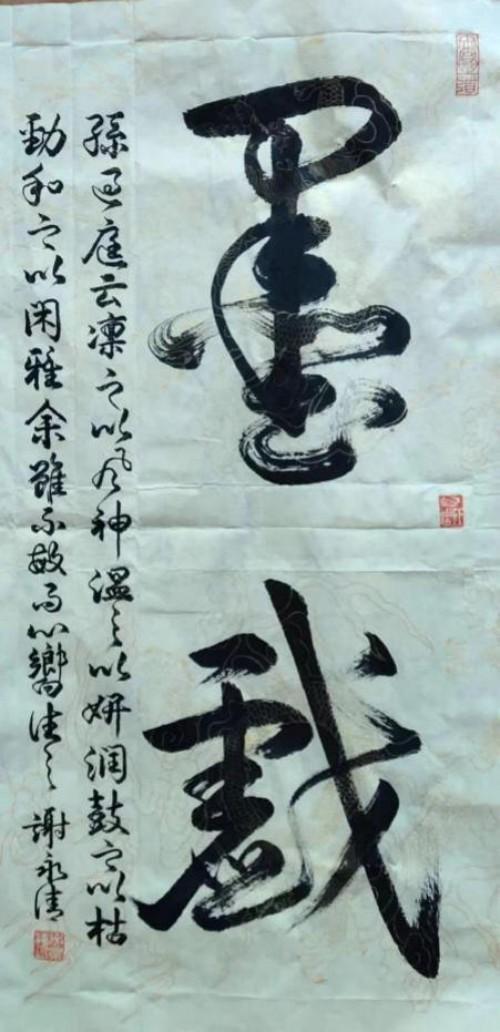 墨戲
孫过庭云凛之以风神温之以妍润鼓之以枯
勁和之以闲雅余雖不敏而心嚮往之 謝永清